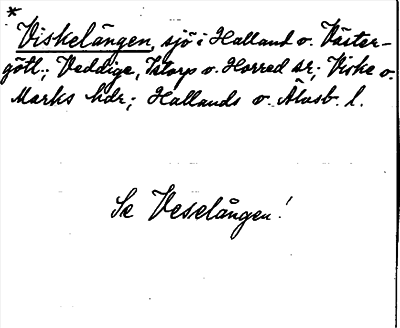 *
Viskelången, sjö i Halland o. Väster-
götl.; Veddige, Istorp o. Horred sr; Viske o.
Marks hdr; Hallands o. Älvsb. l.
Se Veselången!